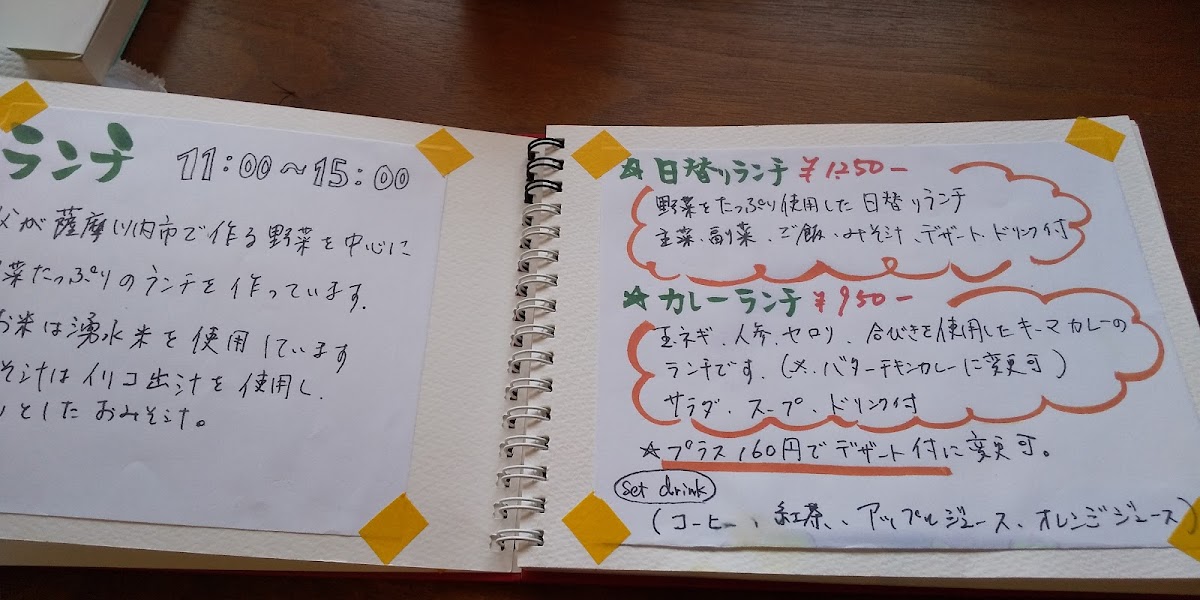 ランチ 11:00～15:00
父が薩摩川内市で作る野菜を中心に
菜たっぷりのランチを作っています.
お米は湧水米を使用しています
そ汁はイリコ出汁を使用し.
としたおみそ汁。
☆日替りランチ ¥1,250-
野菜をたっぷり使用した日替りランチ
主菜、副菜、ご飯、みそ汁、デザート、ドリンク付
☆カレーランチ ¥950-
玉ネギ、人参、セロリ、合びきを使用したキーマカレーの
ランチです. (※. バターチキンカレーに変更可)
サラダ、スープ、ドリンク付
☆プラス160円でデザート付に変更可。
set drink
(コーヒー、紅茶、アップルジュース、オレンジジュース)